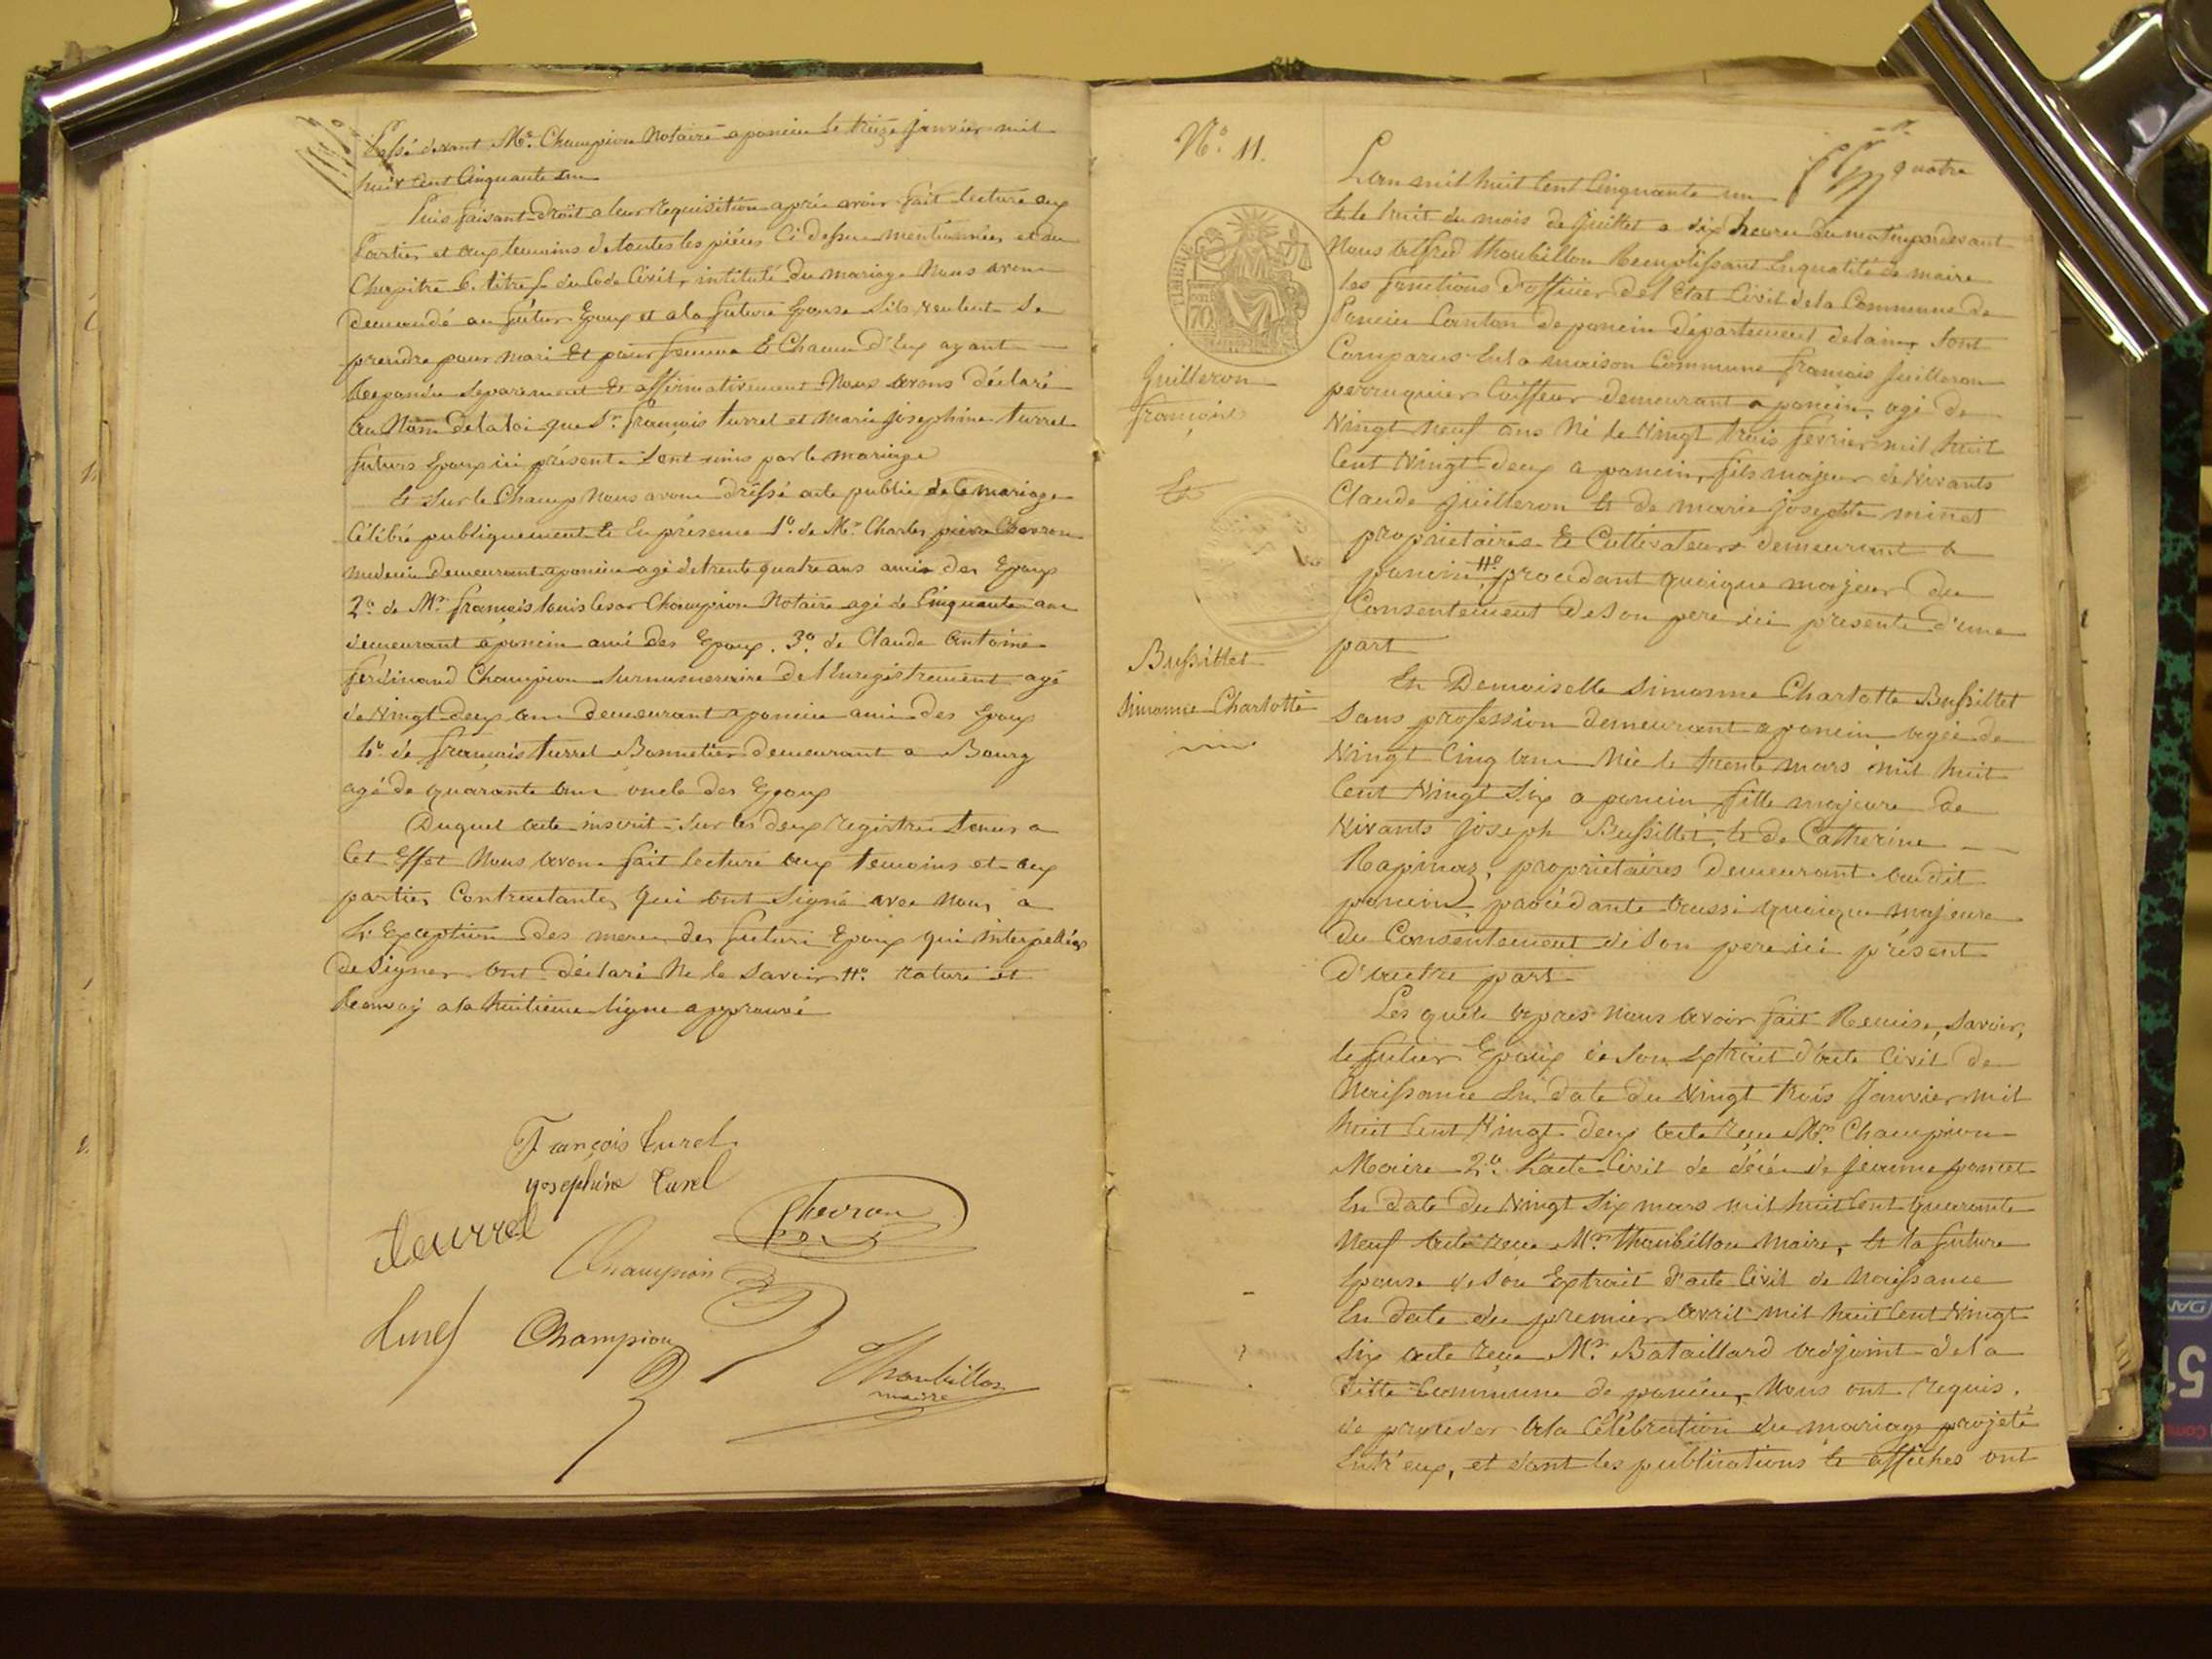 Passé devant Me. Champion Notaire a poncin le treize janvier mil
huit cent Cinquante un
Puis faisant droit a leur requisition apres avoir fait lecture aux
Parties et aux temoins de toutes les piéces ci dessus mentionnées et du
Chapitre 6. titre 5 du Code Civil, intitulé du mariage Nous avons
demandé au futur Epoux et a la future Epouse s'ils veulent se
prendre pour mari Et pour femme Et Chacun d'Eux ayant
Repondu separement Et affirmativement Nous avons déclaré
au Nom de la loi que Sr. françois turrel et Marie josephine turrel
futurs Epoux ici présents Sont unis par le mariage
Et Sur le Champ Nous avons dréssé acte public de ce mariage
Célébré publiquement Et En présence 1º. de Mr. Charles pierre Chevron
medecin demeurant a poncin agé de trente quatre ans amis des Epoux
2º. de Mr. françois louis Cesar Champion Notaire agé de Cinquante ans
demeurant a poncin ami des Epoux. 3º. de Claude Antoine
ferdinand Champion Surnumeraire de l'Enregistrement agé
de Vingt deux ans demeurant a poncin ami des Epoux
4º. de françois turrel Bonnetier demeurant a Bourg
agé de quarante ans oncle des Epoux
Duquel acte inscrit Sur les deux registres tenus a
Cet Effet Nous avons fait lecture aux temoins et aux
parties Contractantes qui ont Signé avec Nous, a
L'Exception des meres des futurs Epoux qui interpellées
de Signer ont déclaré Ne le Savoir #. rature et
Renvoi a la huitieme ligne approuvé
François turel
Josephine turel
Chevron
turrel
Champion
turel
Champion
Thoubillon
maire
Nº. 11.
quatre
TIMBRE
70
Guilleron
françois
Et
Bussillet
Simonne Charlotte
L'an mil huit Cent Cinquante un
Et le huit du mois de Juillet a dix heures du matin pardevant
Nous Alfred Thoubillon Remplissant En qualité de maire
les fonctions d'officier de l'Etat Civil de la Commune de
Poncin Canton de poncin département de l'ain, Sont
Comparus En la maison Commune françois juilleron
perruquier Coiffeur demeurant a poncin, agé de
Vingt Neuf ans Né le Vingt trois fevrier mil huit
Cent Vingt deux a poncin, fils majeur de Vivants
Claude juilleron Et de marie josephte minet
propriétaires Et Cultivateurs demeurant a
poncin, # procedant quoique majeur du
Consentement de Son pere ici present d'une
part
Et Demoiselle Simonne Charlotte Bussillet
Sans profession demeurant a poncin agée de
Vingt Cinq ans Née le trente mars mil huit
Cent Vingt Six a poncin fille majeure de
Vivants Joseph Bussillet, Et de Catherine
Rapinaz, propriétaires demeurant audit
poncin, procédante aussi quoique majeure
du Consentement de Son pere ici présent
d'autre part
Les quels apres Nous avoir fait Remise, Savoir,
le futur Epoux de Son Extrait d'acte Civil de
Naissance En date du Vingt trois Janvier mil
huit Cent Vingt deux acte reçu Mr. Champion
Maire 2º. l'acte Civil de décés de jeanne poncet
En date du Vingt Six mars mil huit Cent quarante
Neuf acte reçu Mr. Thoubillon Maire, Et la future
Epouse de Son Extrait d'acte Civil de Naissance
En date du premier avril mil huit Cent Vingt
Six acte reçu Mr. Bataillard adjoint de la
ditte Commune de poncin, Nous ont requis,
de proceder a la Célébration du mariage projeté
Entr'eux, et dont les publications Et affiches ont